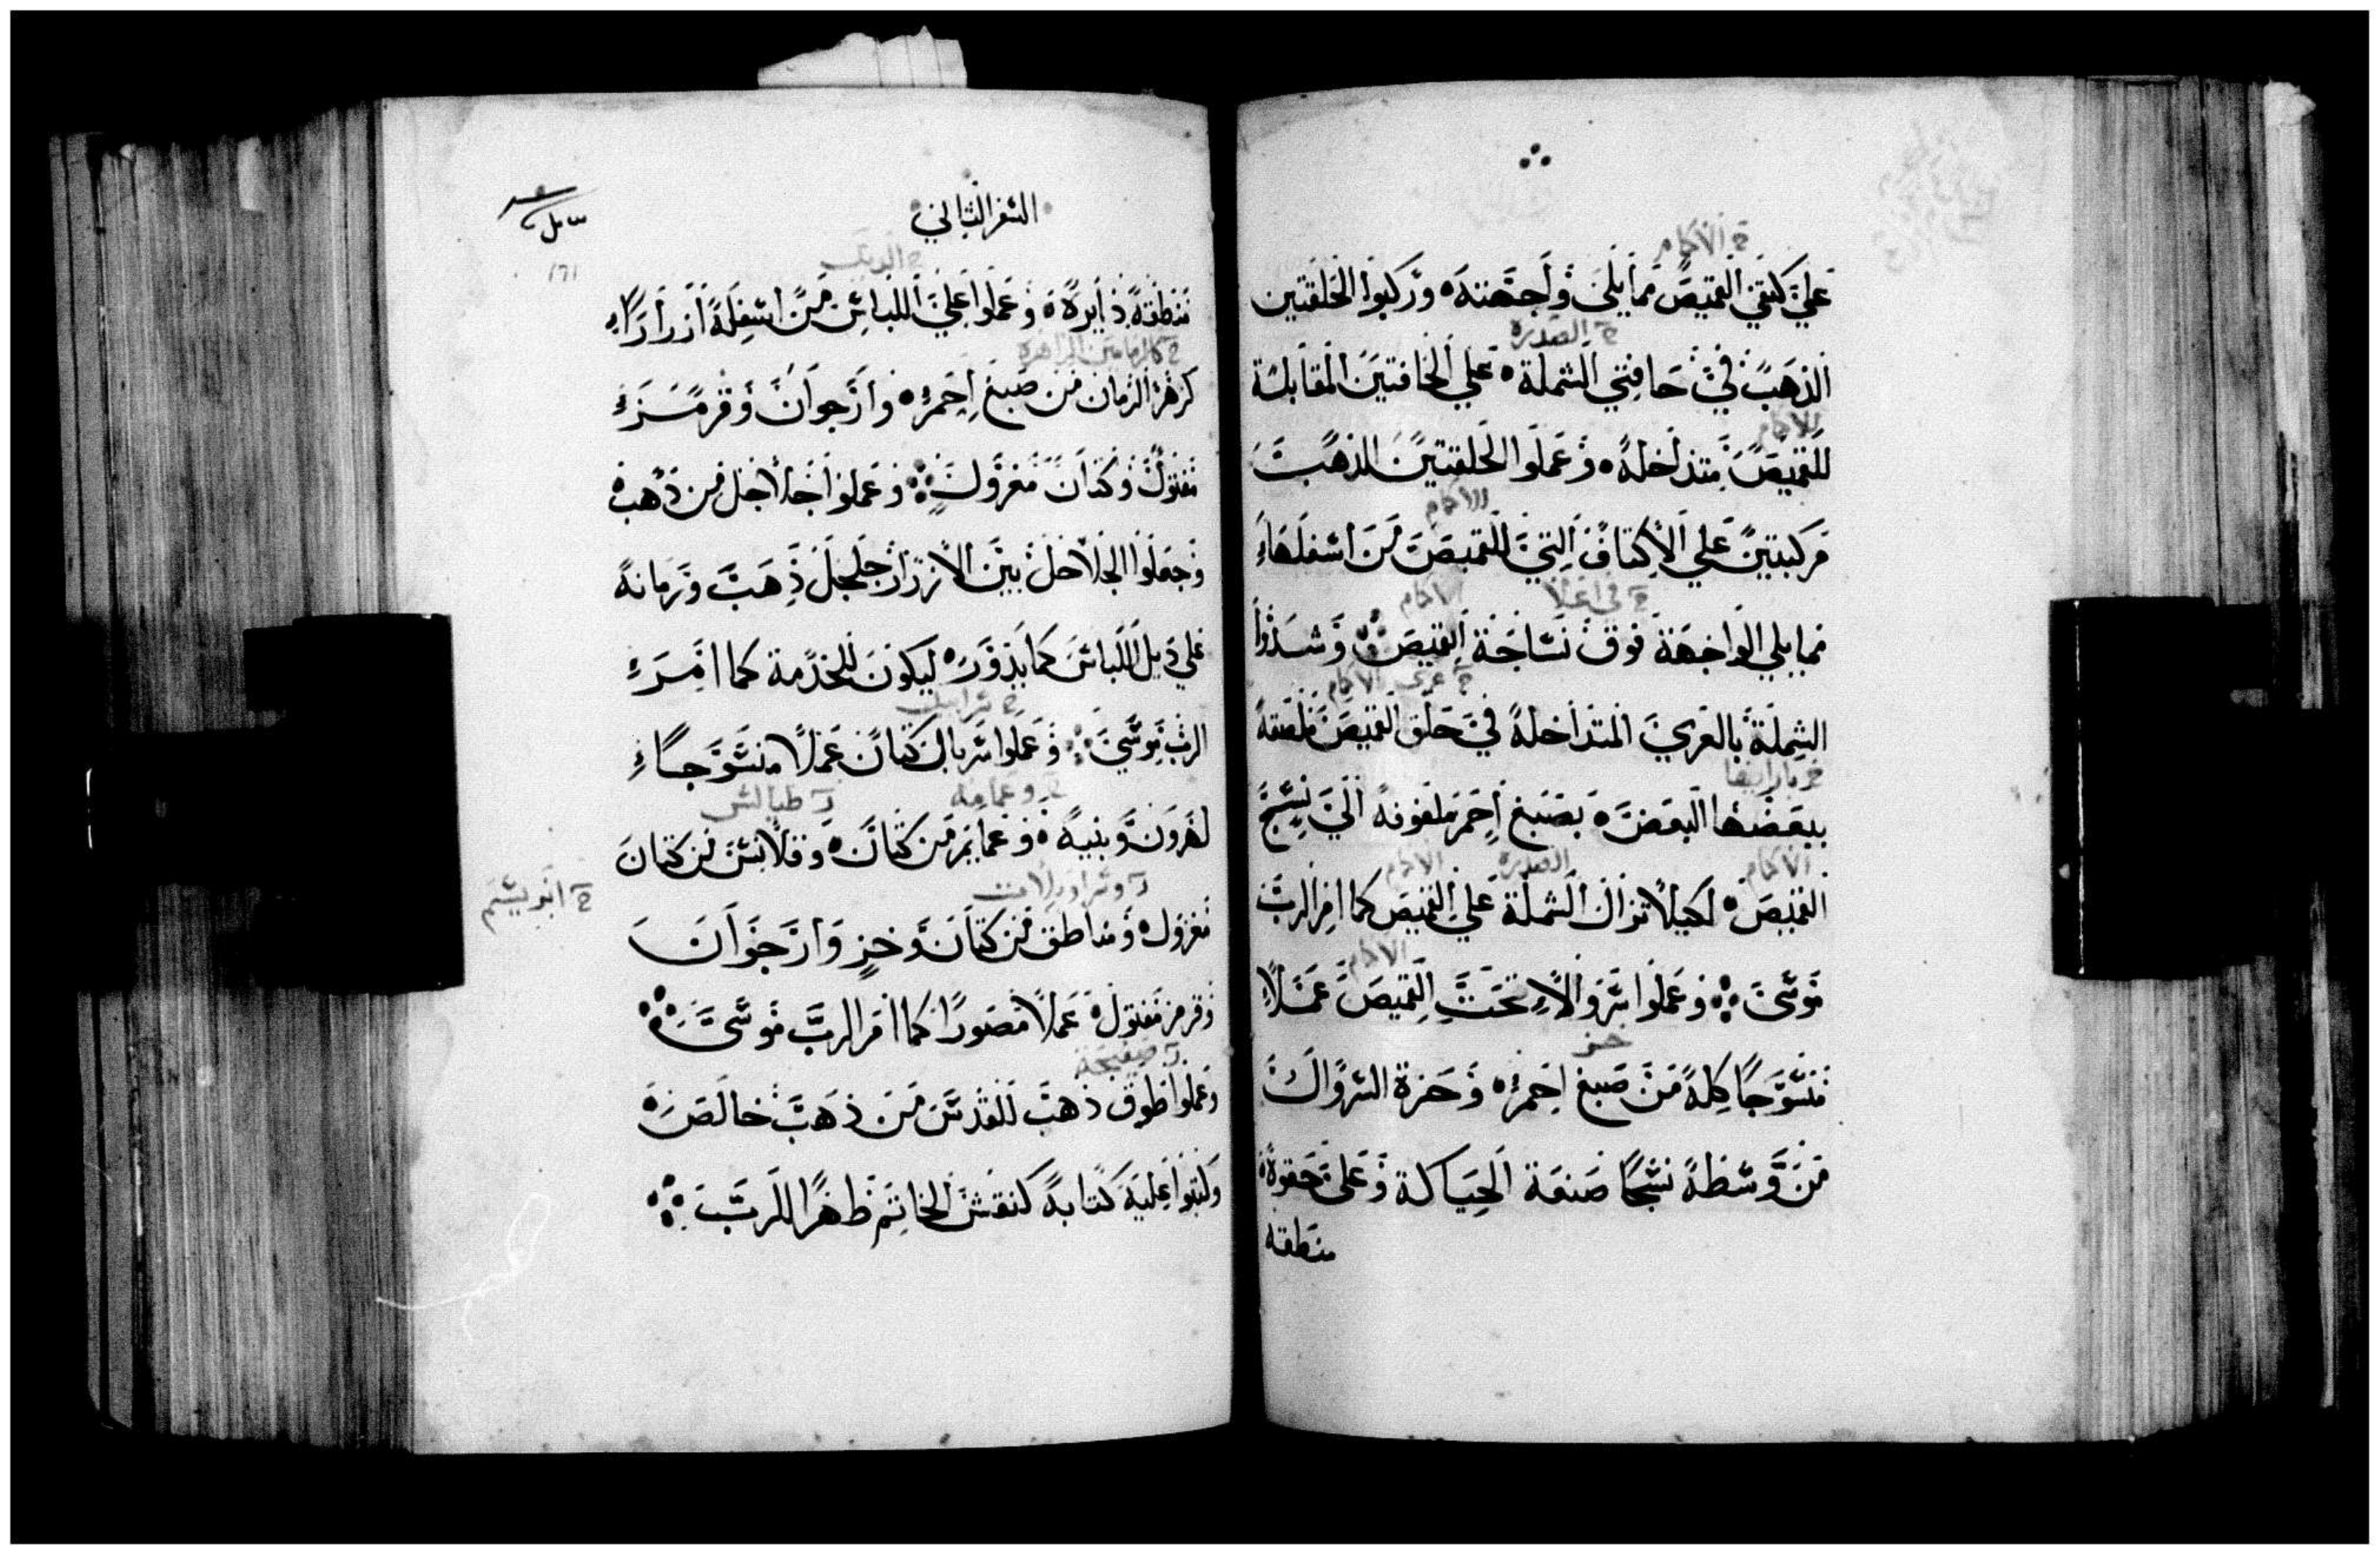 على كتفي القميص مما يلي واجهته وركبوا الحلقتين
الذهب في حافتي الشملة على الحافتين المقابلة
للقميص متداخلة وعملوا الحلقتين الذهب
مركبتين على الاكتاف التي للقميص من اسفلها
مما يلي الواجهة فوق نساجة القميص وشدوا
الشملة بالعري المتداخلة في حلق القميص ملصقة
ببعضها البعض بصبغ احمر ملفوفة الي نسج
القميص لكيلا تزال الشملة على القميص كما امر الرب
موسى وعملوا سروالا تحت القميص عملا
منسوجا كله من صبغ احمر وحزة السروال
من وسطه نسجا صنعة الحياكة وعلى حقوه
منطقه
السفر الثاني
منطقة دايرة وعملوا على اللباس من اسفله ازرارا
كزهر الرمان من صبغ احمر وارجوان وقرمز
مفتول وكتان مغزول وعملوا جلاجل من ذهب
وجعلوا الجلاجل بين الازرار جلجل ذهب ورمانة
على ذيل اللباس كما يدور ليكون للخدمة كما امر
الرب موسى وعملوا سربال كتان عملا منسوجا
لهرون وبنيه وعمايم من كتان وقلانس من كتان
مغزول ومناطق من كتان وخز وارجوان
وقرمز مفتول عملا مصورا كما امر الرب موسى
وعملوا طوق ذهب للقدس من ذهب خالص
وكتبوا عليه كتابة كنقش الخاتم طهرا للرب